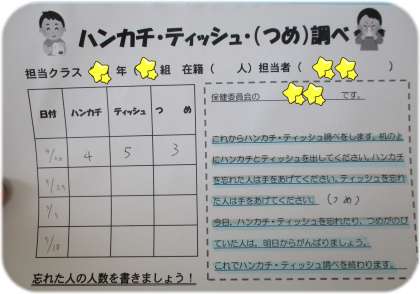 ハンカチ・ティッシュ・(つめ)調べ
担当クラス 年 組 在籍( 人)担当者( )
日付 ハンカチ ティッシュ つめ
4 5 3
忘れた人の人数を書きましょう!
保健委員会の です。
これからハンカチ・ティッシュ調べをします。机の上
にハンカチとティッシュを出してください。ハンカチ
を忘れた人は手をあげてください。ティッシュを忘れ
た人は手をあげてください。(つめ)
今日、ハンカチ・ティッシュを忘れたり、つめがのび
ていた人は、明日からがんばりましょう。
これでハンカチ・ティッシュ調べを終わります。